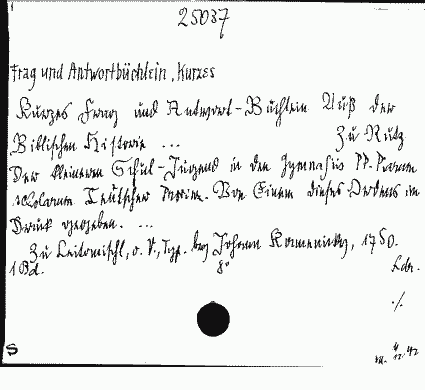 25037
Frag und Antwortbüchlein, Kurzes
Kurzes Frag und Antwort-Büchlein Auß der
Biblischen Historie ... Zu Nutz
Der kleineren Schul-Jugend in den Gymnasiis PP. Piarum
scholarum Teutscher Provinz. Von Einem dieses Ordens in
Druck gegeben. ...
Zu Leitomischl, o. V., Typ. bey Johann Kamenicky, 1750.
1 Bd. 8° Ldr.
./.
S